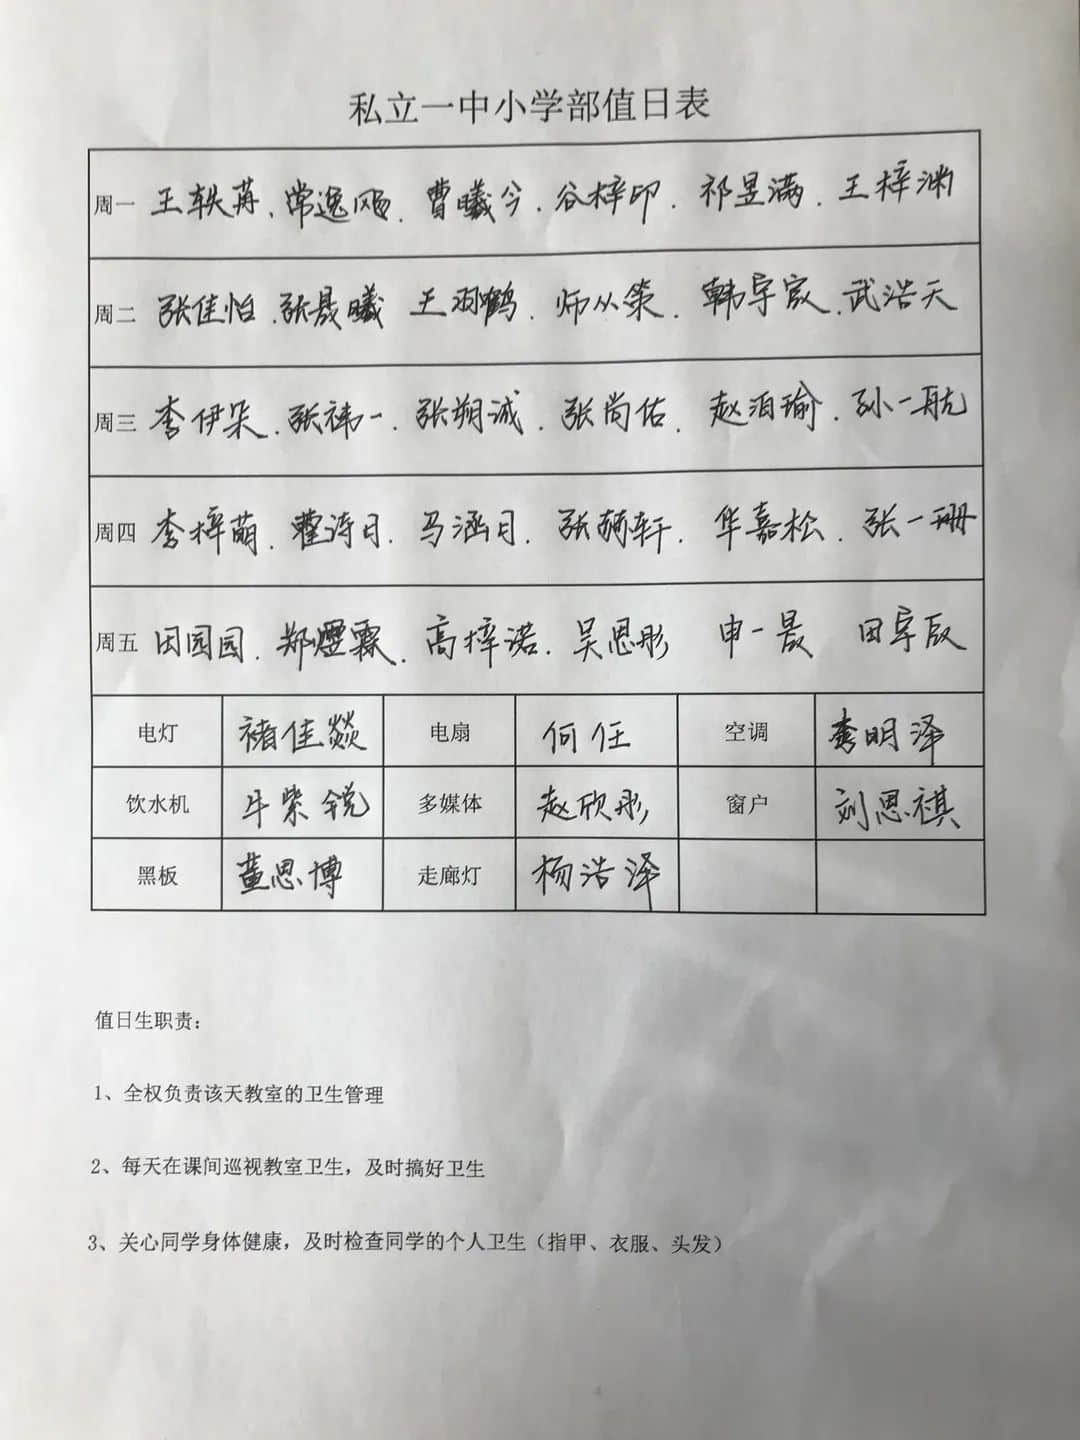 私立一中小学部值日表
周一 王轶苒、常逸飏、曹曦今、谷梓印、祁昱满、王梓渊
周二 张佳怡、张晟曦 王羽鹤、师从策、韩宇宸、武浩天
周三 李伊朵、张祎一、张朔诚、张尚佑、赵泊瑜、孙一航
周四 李梓萌、董诗日、马涵日、张轩、华嘉松、张一珊
周五 田园园、郑煜霖、高梓诺、吴思彤 申一晟 田宇辰
电灯 褚佳燚 电扇 何任 空调 李明泽
饮水机 牛紫锐 多媒体 赵欣彤 窗户 刘思祺
黑板 董思博 走廊灯 杨浩泽
值日生职责：
1、全权负责该天教室的卫生管理
2、每天在课间巡视教室卫生，及时搞好卫生
3、关心同学身体健康，及时检查同学的个人卫生（指甲、衣服、头发）